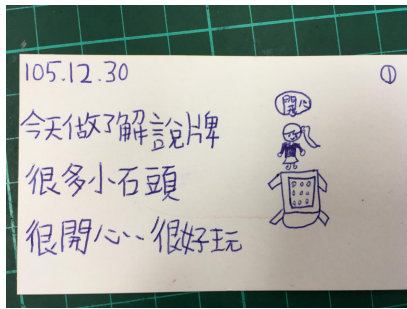 105.12.30
①
今天做了解說牌
開心
很多小石頭
很開心..很好玩